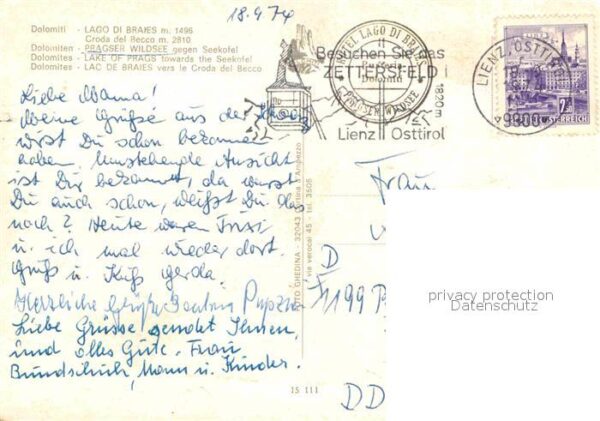 18.9.74
Dolomiti - LAGO DI BRAIES m. 1496
Croda del Becco m. 2810
Dolomiten - PRAGSER WILDSEE gegen Seekofel
Dolomites - LAKE OF PRAGS towards the Seekofel
Dolomites - LAC DE BRAIES vers le Croda del Becco
Liebe Mama!
Meine Grüße aus der
wirst Du schon bekommen
haben. Umstehende Ansicht
ist Dir bekannt, da warst
Du auch schon, weißt Du das
noch? Heute waren
u. ich mal wieder dort.
Gruß u. Kuß Gerda.
Herzliche Grüße
Liebe Grüsse sendet Ihnen,
und alles Gute, Frau
Bundschuh, Mann u. Kinder.
HOTEL LAGO DI BRAIES
PRAGSER WILDSEE
Besuchen Sie das
ZETTERSFELD
1820 m
Lienz Osttirol
LIENZ, OSTTIROL
9900
2
ÖSTERREICH
FOTO GHEDINA - 32043 Cortina d'Ampezzo
via verocai 45 - tel. 3505
Frau
D
1199
DD
privacy protection
Datenschutz
15 111